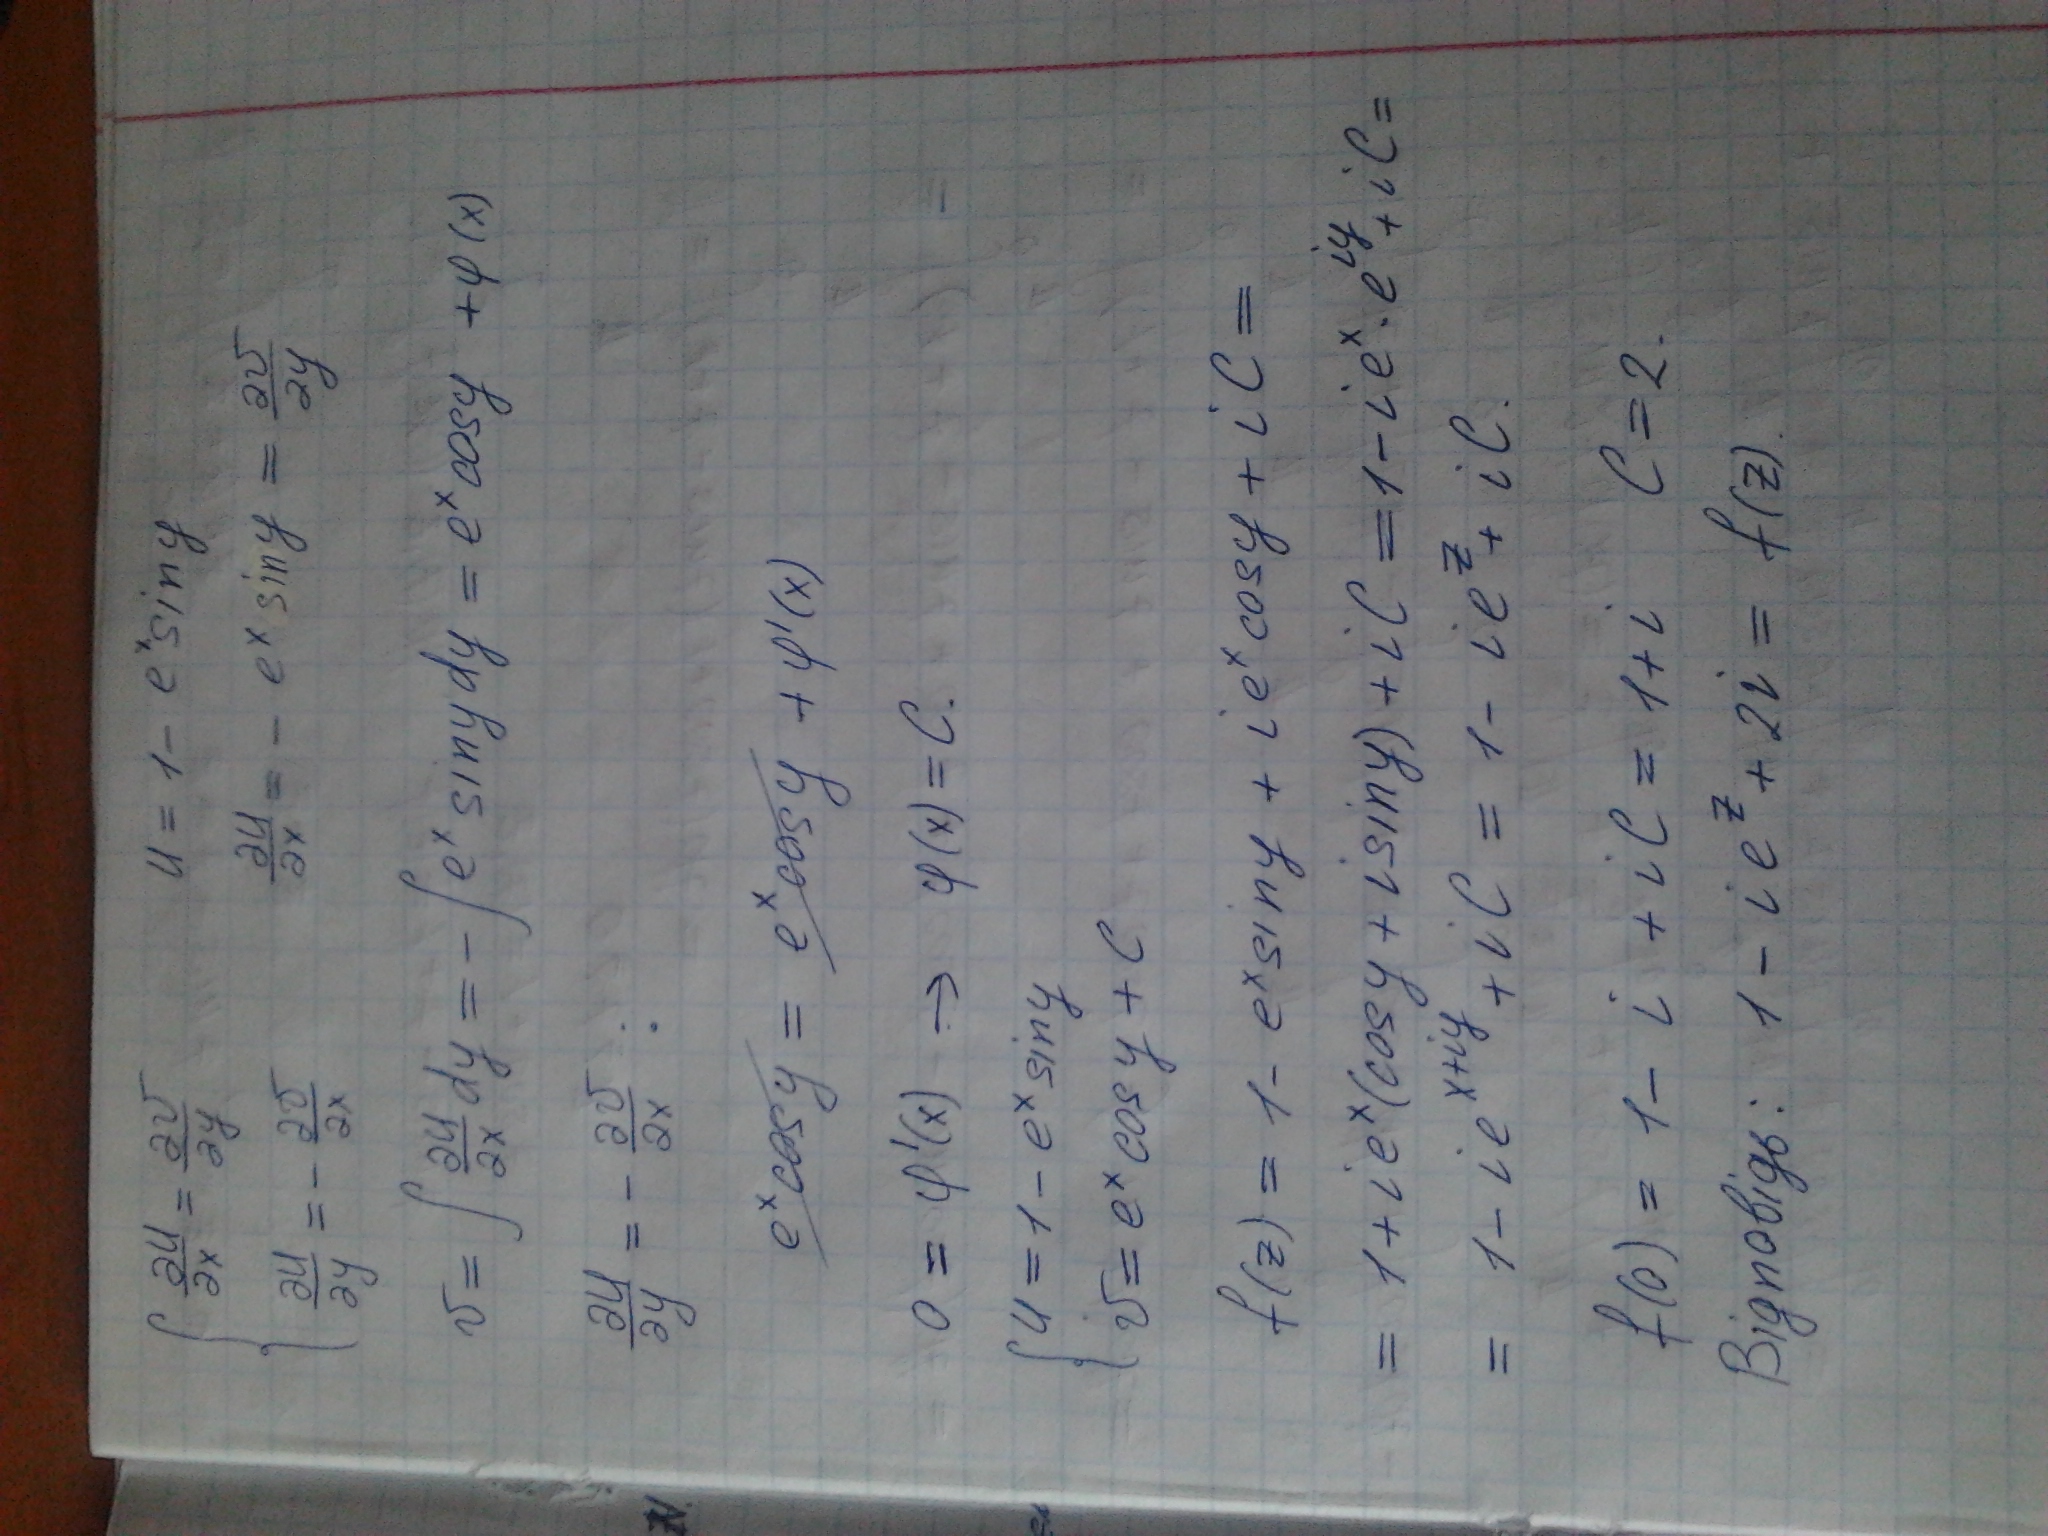 ∂u/∂x = ∂v/∂y u = 1 - eˣ sin y
∂u/∂y = - ∂v/∂x ∂u/∂x = - eˣ sin y = ∂v/∂y
v = ∫ ∂u/∂x dy = - ∫ eˣ sin y dy = eˣ cos y + φ(x)
∂u/∂y = - ∂v/∂x :
eˣ cos y = eˣ cos y + φ'(x)
0 = φ'(x) → φ(x) = C.
u = 1 - eˣ sin y
v = eˣ cos y + C
f(z) = 1 - eˣ sin y + i eˣ cos y + i C =
= 1 + i eˣ (cos y + i sin y) + i C = 1 - i eˣ · e^{iy} + i C =
= 1 - i e^{x+iy} + i C = 1 - i e^z + i C.
f(0) = 1 - i + i C = 1 + i C = 2.
Відповідь: 1 - i e^z + 2i = f(z).